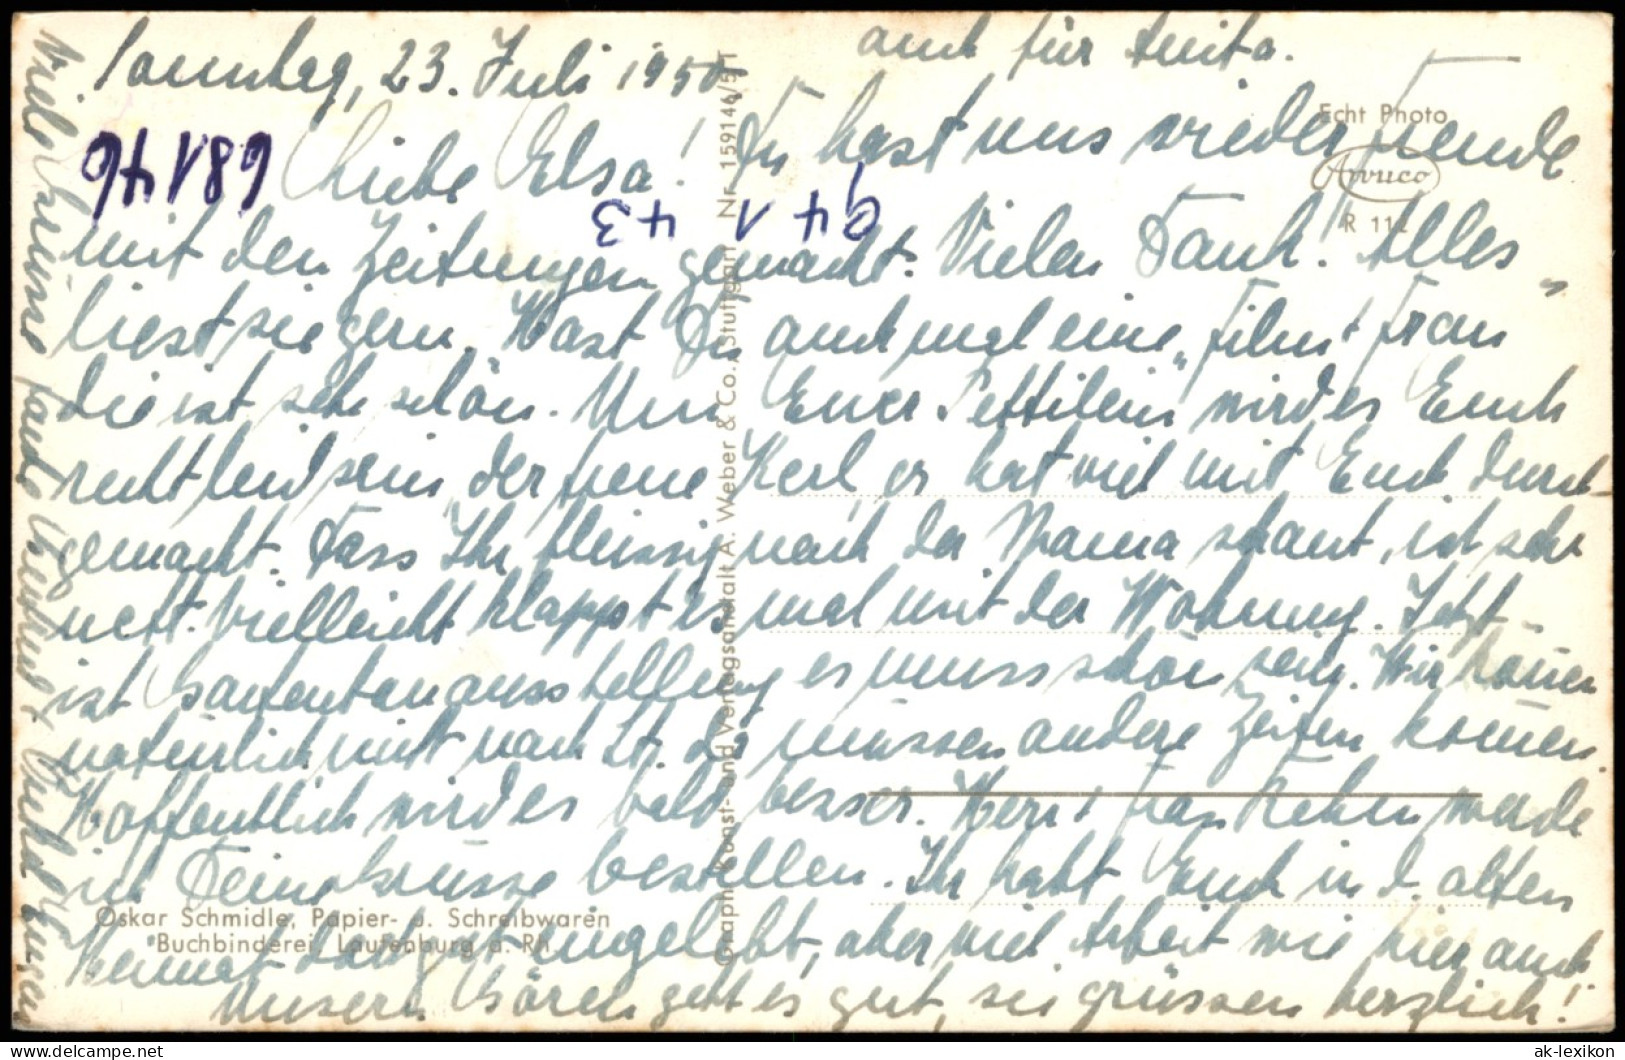 Sonntag, 23. Juli 1950
auch für Anita.
Echt Photo
Liebe Elsa! Du hast uns wieder Freude
Arruco
R 112
68176
94 1 43
mit den Zeitungen gemacht. Vielen Dank! Alles
liest sie gern. Hast Du auch mal eine „Film u Frau"
die ist sehr schön. Um Euer wird es Euch
recht leid sein, der Kerl, er hat viel mit Euch durch-
gemacht. Dass Ihr fleissig nach der Mama schaut, ist sehr
nett. Vielleicht klappt es mal mit der Wohnung. Jetzt
ist Gartenbauausstellung es muss schön sein. Wir können
natürlich nicht nach St. da müssen andere Zeiten kommen.
Hoffentlich wird es bald besser. Herr u Frau werde
ich Deine Grüsse bestellen. Ihr habt Euch in d. alten
Heimat eingelebt, aber viel Arbeit wie hier auch!
Unsern Bären geht es gut, sie grüssen herzlich!
Viele Grüsse
Oskar Schmidle, Papier- u. Schreibwaren
Buchbinderei, Laufenburg a. Rh.
Graph. Kunst- und Verlagsanstalt A. Weber & Co., Stuttgart Nr. 159146/5 T
ak-lexikon